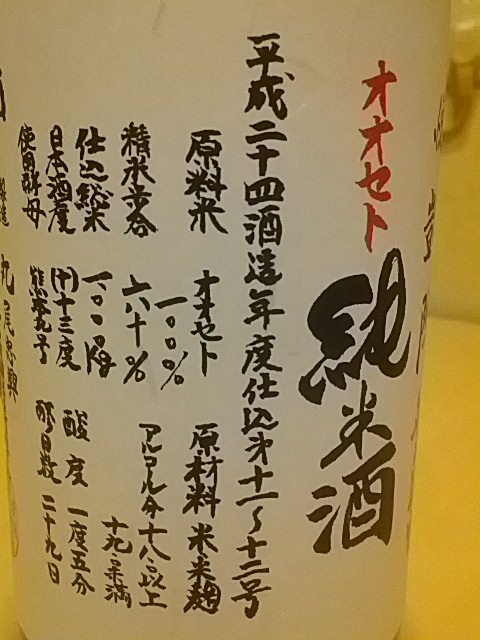 オオセト
純米酒
平成二十四酒造年度仕込第十一〜十二号
原料米 オオセト一〇〇% 原材料 米米麹
精米歩合 六十% アルコール分十八以上十九未満
仕込総米 一〇〇〇kg
日本酒度 (+)十三度 酸度 一度五分
使用酵母 熊本九号 醪日数 二十九日